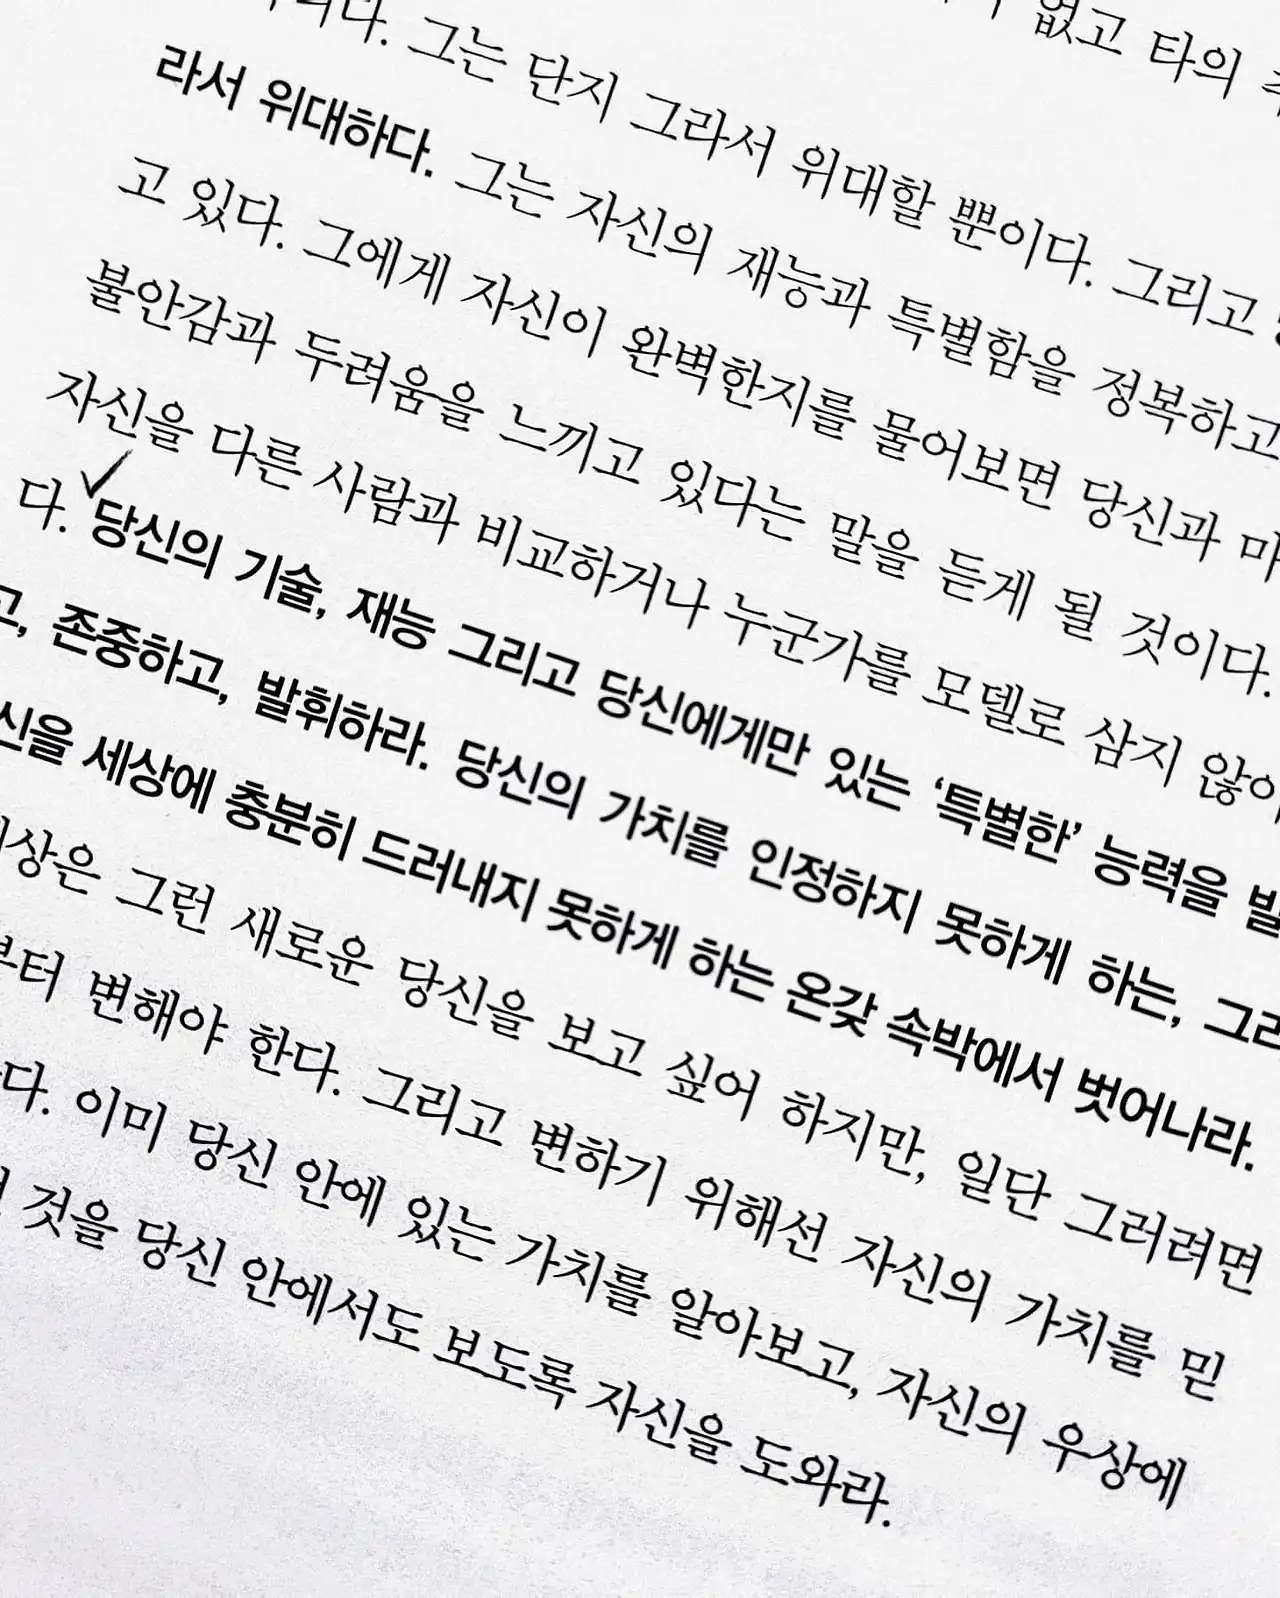 없고 타의
그는 단지 그라서 위대할 뿐이다. 그리고
라서 위대하다. 그는 자신의 재능과 특별함을 정복하고
고 있다. 그에게 자신이 완벽한지를 물어보면 당신과 마
불안감과 두려움을 느끼고 있다는 말을 듣게 될 것이다.
자신을 다른 사람과 비교하거나 누군가를 모델로 삼지 않
다. 당신의 기술, 재능 그리고 당신에게만 있는 ‘특별한’ 능력을 발
고, 존중하고, 발휘하라. 당신의 가치를 인정하지 못하게 하는, 그리
신을 세상에 충분히 드러내지 못하게 하는 온갖 속박에서 벗어나라.
세상은 그런 새로운 당신을 보고 싶어 하지만, 일단 그러려면
부터 변해야 한다. 그리고 변하기 위해선 자신의 가치를 믿
다. 이미 당신 안에 있는 가치를 알아보고, 자신의 우상에
것을 당신 안에서도 보도록 자신을 도와라.